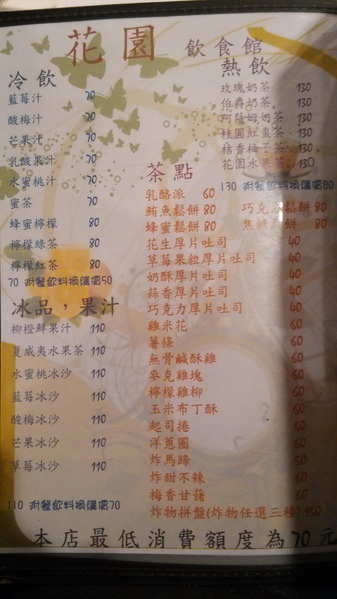 花園 飲食館
冷飲
藍莓汁 70
酸梅汁 70
芒果汁 70
乳酸果汁 70
水蜜桃汁 70
蜜茶 70
蜂蜜檸檬 80
檸檬綠茶 80
檸檬紅茶 80
70 附餐飲料換購價50
冰品,果汁
柳橙鮮果汁 110
夏威夷水果茶 110
水蜜桃冰沙 110
藍莓冰沙 110
酸梅冰沙 110
芒果冰沙 110
草莓冰沙 110
110 附餐飲料換購價70
熱飲
玫瑰奶茶 130
伯爵奶茶 130
阿薩姆奶茶 130
桂圓紅棗茶 130
桔香柚子茶 130
花園水果茶 130
130 附餐飲料換購價80
茶點
乳酪派 60
鮪魚鬆餅 80 巧克力鬆餅 80
蜂蜜鬆餅 80 焦糖鬆餅 80
花生厚片吐司 40
草莓果粒厚片吐司 40
奶酥厚片吐司 40
蒜香厚片吐司 40
巧克力厚片吐司 40
雞米花 60
薯條 60
無骨鹹酥雞 60
麥克雞塊 60
檸檬雞柳 60
玉米布丁酥 60
起司捲 60
洋蔥圈 60
炸馬蹄 50
炸甜不辣 60
梅香甘藷 60
炸物拼盤(炸物任選三種) 150
本店最低消費額度為70元